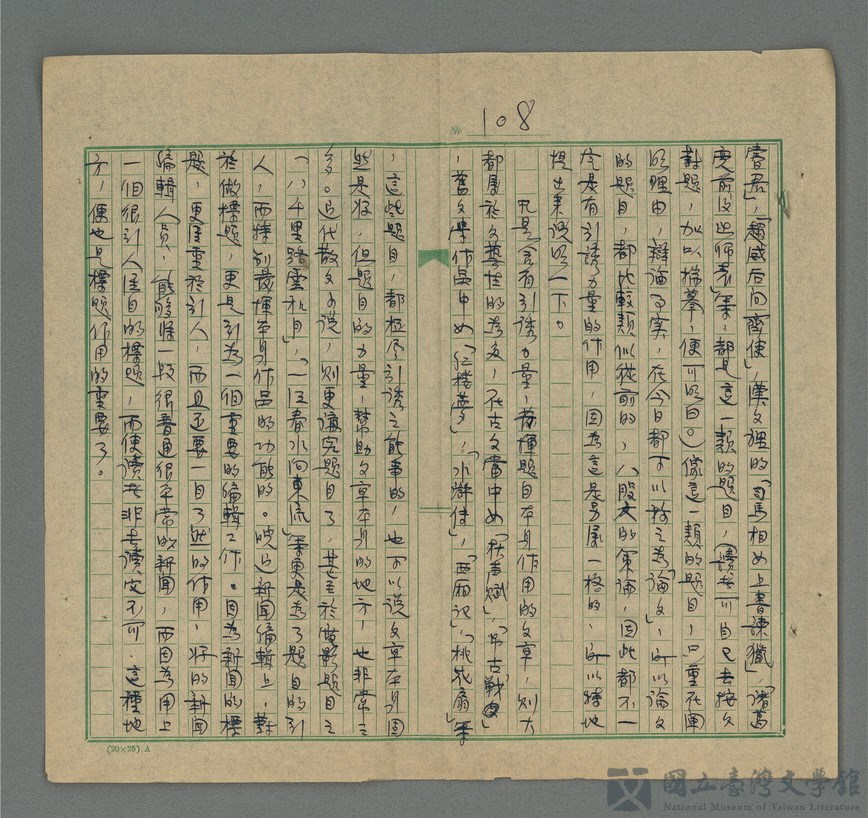 № 108
書君」，「趙威后向齊使」，漢文裡的「司馬相如上書諫獵」，「諸葛
亮前後出師表」等，都是這一類的題目，（讀者可自己去按文
對題，加以揣摹，便可明白。）像這一類的題目，只重在闡
明理由，辯論事實，在今日都可以稱之為「論文」，所以論文
的題目，都比較類似從前的，八股文的策論，因此都不一
定是有引誘力量的作用，因為這是另屬一格的，所以特地
提出來說明一下。
凡是含有引誘力量，發揮題目本身作用的文章，則大
都屬於文藝性的為多，在古文當中如「秋聲賦」，「弔古戰場文」
，舊文學作品中如「紅樓夢」，「水滸傳」，「西廂記」，「桃花扇」等
，這些題目，都極盡引誘之能事的，也可以說文章本身固
然是好，但題目的力量，幫助文章本身的地方，也非常之
多。近代散文小說，則更講究題目了，甚至於電影題目之
「八千里路雲和月」，「一江春水向東流」等更是為了題目的引
人，而特別發揮本身作品的功能的。晚近新聞編輯上，對
於做標題，更是引為一個重要的編輯工作。因為新聞的標
題，更注重於引人，而且還要一目了然的作用，好的新聞
編輯人員，能够將一段很普通很平常的新聞，而因為用上
一個很引人注目的標題，而使讀者非去讀它不可，這種地
方，便也是標題作用的重要了。
(20×25) A
國立臺灣文學館
National Museum of Taiwan Literature